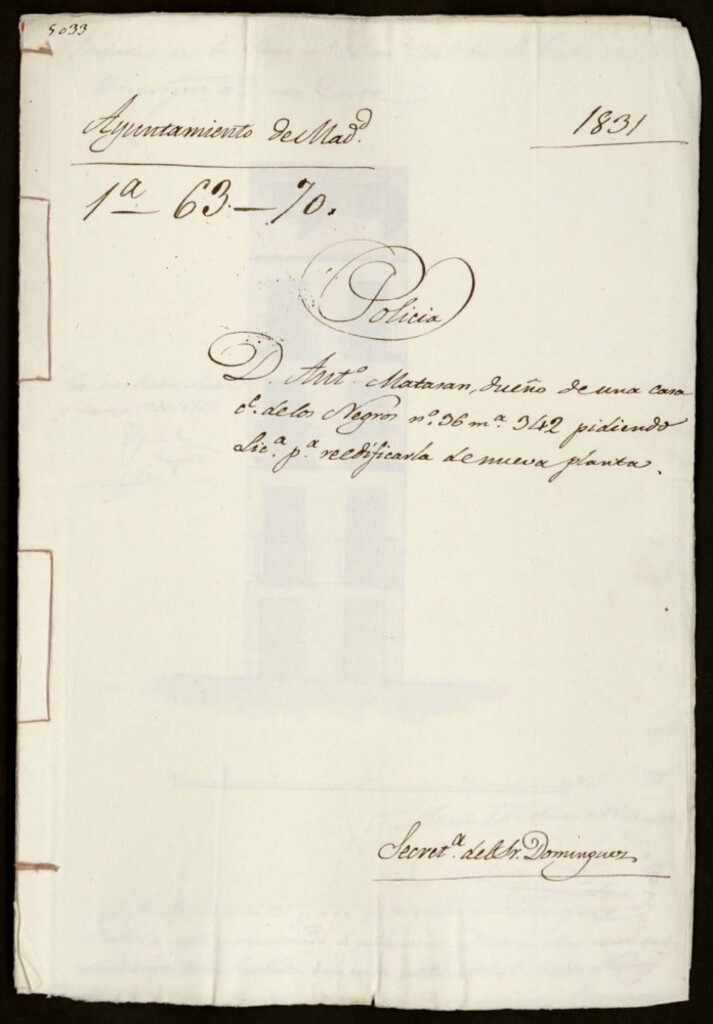 5033
Ayuntamiento de Mad.d
1831
1ª 63-70.
Policia
D. Ant.º Matasan, dueño de una casa
c.e de los Negros n.º 36 m.ª 342 pidiendo
Lic.ª p.ª reedificarla de nueva planta.
Secret.ª del Sr. Dominguez